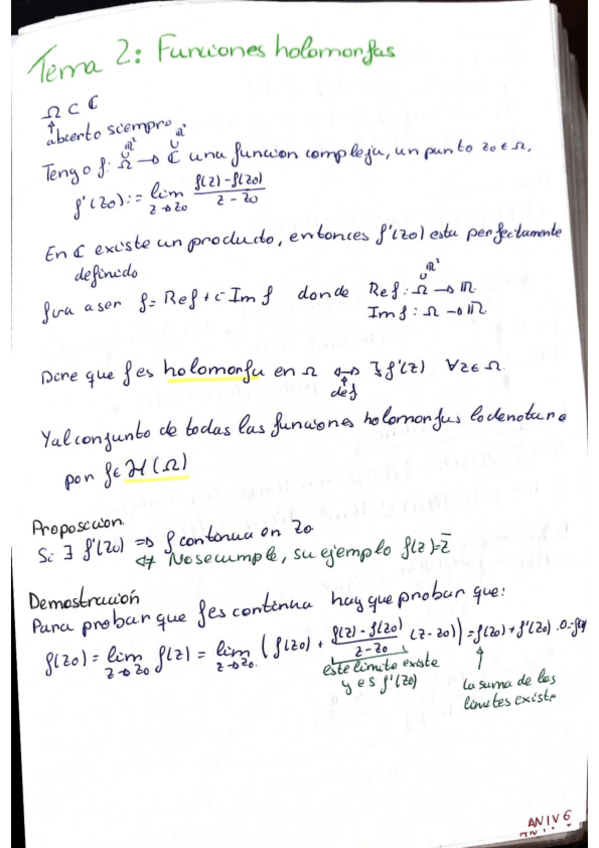 Tema 2: Funciones holomorfas
Ω ⊂ ℂ
↑
abierto siempre
ℝ² ℝ²
∪ ∪
Tengo f: Ω → ℂ una funcion compleja, un punto z0 ∈ Ω,
f'(z0) := lim z→z0 (f(z) - f(z0)) / (z - z0)
En ℂ existe un producto, entonces f'(z0) esta perfectamente
definido
f va a ser f = Re f + i Im f donde Re f : Ω → ℝ
∪ ℝ²
Im f : Ω → ℝ
Dire que f es holomorfa en Ω ⟷ ∃ f'(z) ∀ z ∈ Ω.
↑
def
Y al conjunto de todas las funciones holomorfas lo denotare
por f ∈ ℋ(Ω)
Proposicion
Si ∃ f'(z0) ⇒ f continua en z0
⇍ No se cumple, su ejemplo f(z) = z̅
Demostración
Para probar que f es continua hay que probar que:
f(z0) = lim z→z0 f(z) = lim z→z0 (f(z0) + (f(z) - f(z0)) / (z - z0) (z - z0)) = f(z0) + f'(z0) . 0 =
este limite existe
y es f'(z0)
↑
la suma de los
limites existe
AN IV 6